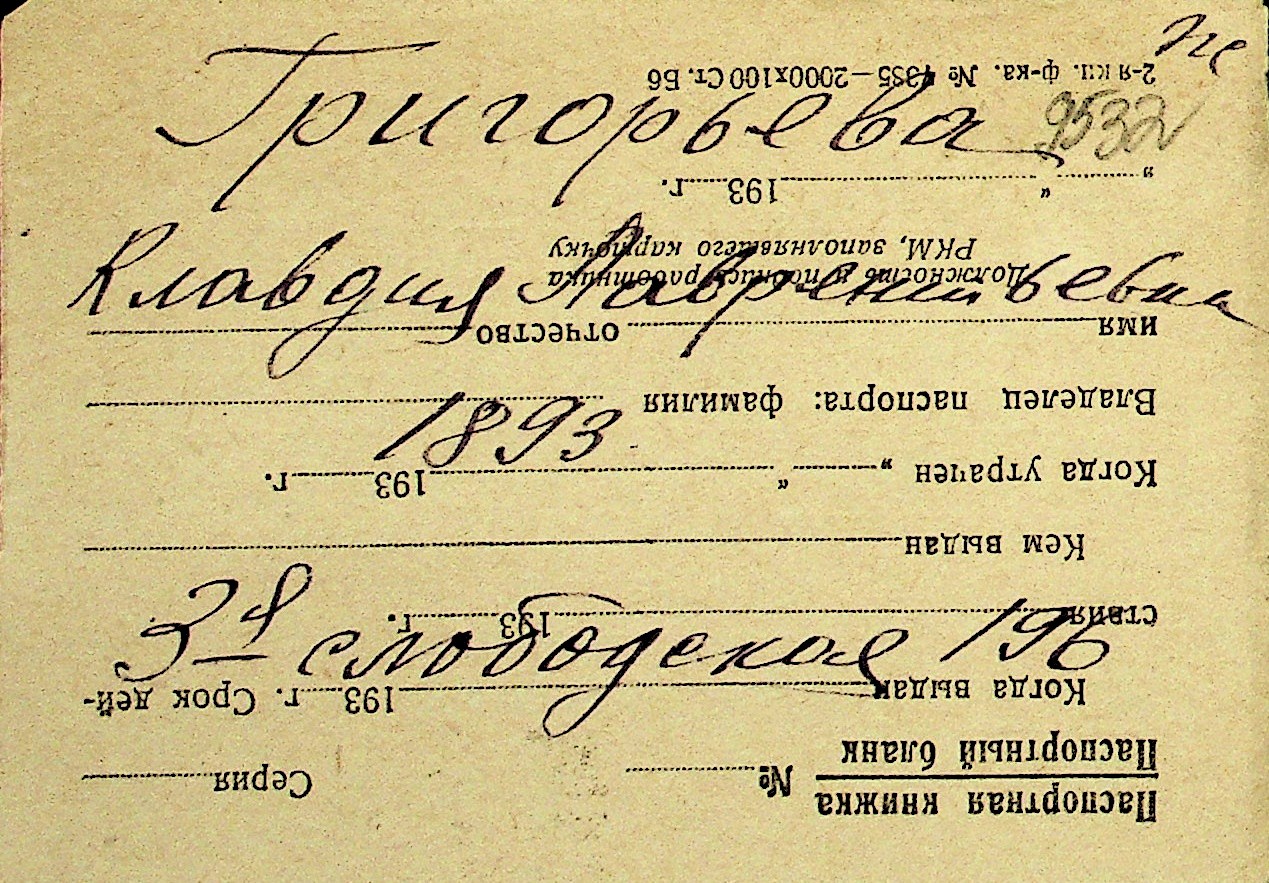 Григорьева 9532
Клавдия Лаврентьевна
1893
3я слободская 196
Паспортная книжка № Серия
Паспортный бланк
Когда выдан 193 г. Срок дей-
ствия 193 г.
Кем выдан
Когда утрачен „ “ 193 г.
Владелец паспорта: фамилия
имя отчество
Должность и подпись работника
РКМ, заполнявшего карточку
„ “ 193 г.
2-я кн. ф-ка. № —2000х100 Ст. Б6